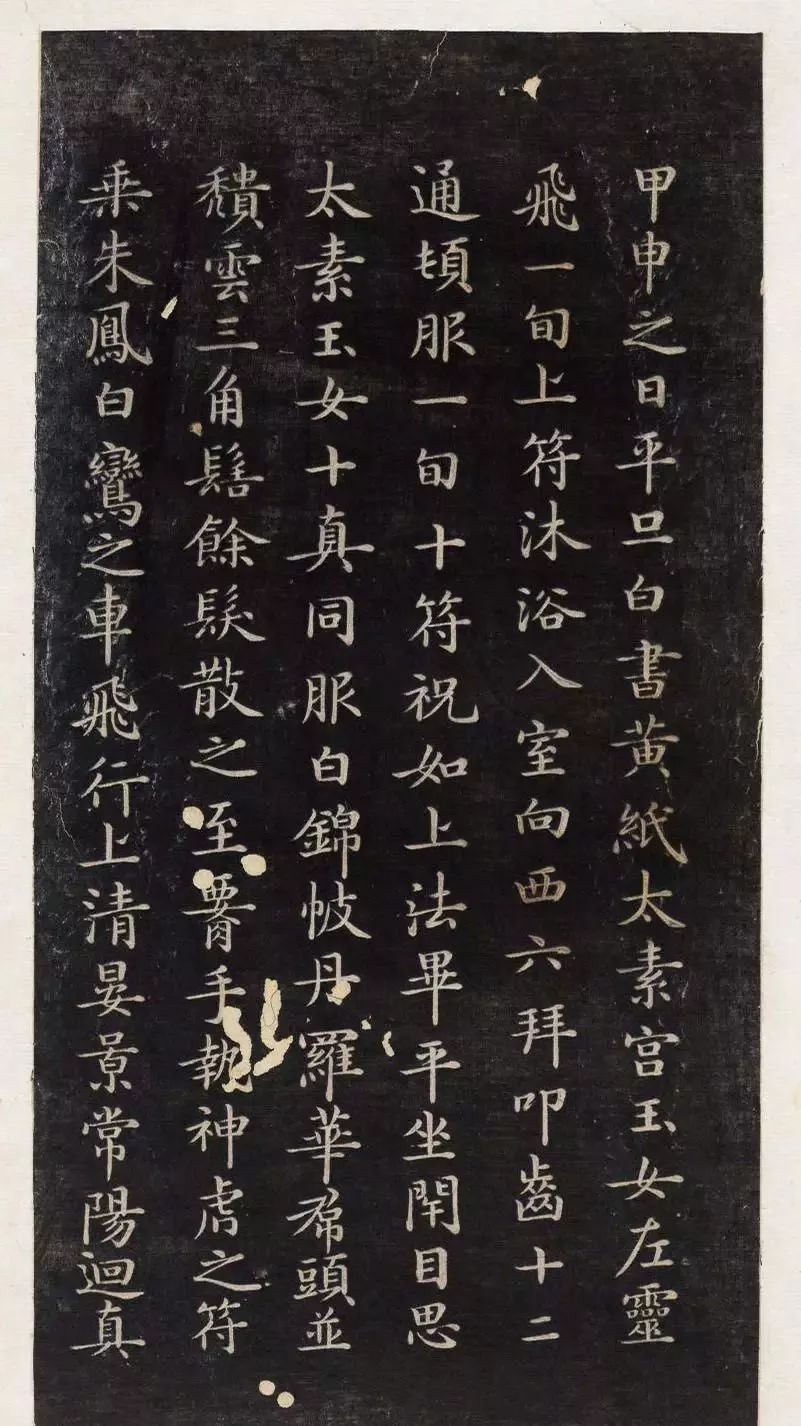 甲申之日平旦白書黃紙太素宮玉女左靈
飛一旬上符沐浴入室向西六拜叩齒十二
通頓服一旬十符祝如上法畢平坐閇目思
太素玉女十真同服白錦帔丹羅華帬頭並
頹雲三角髻餘髮散之至𦝫手執神虎之符
乗朱鳳白鸞之車飛行上清晏景常陽迴真